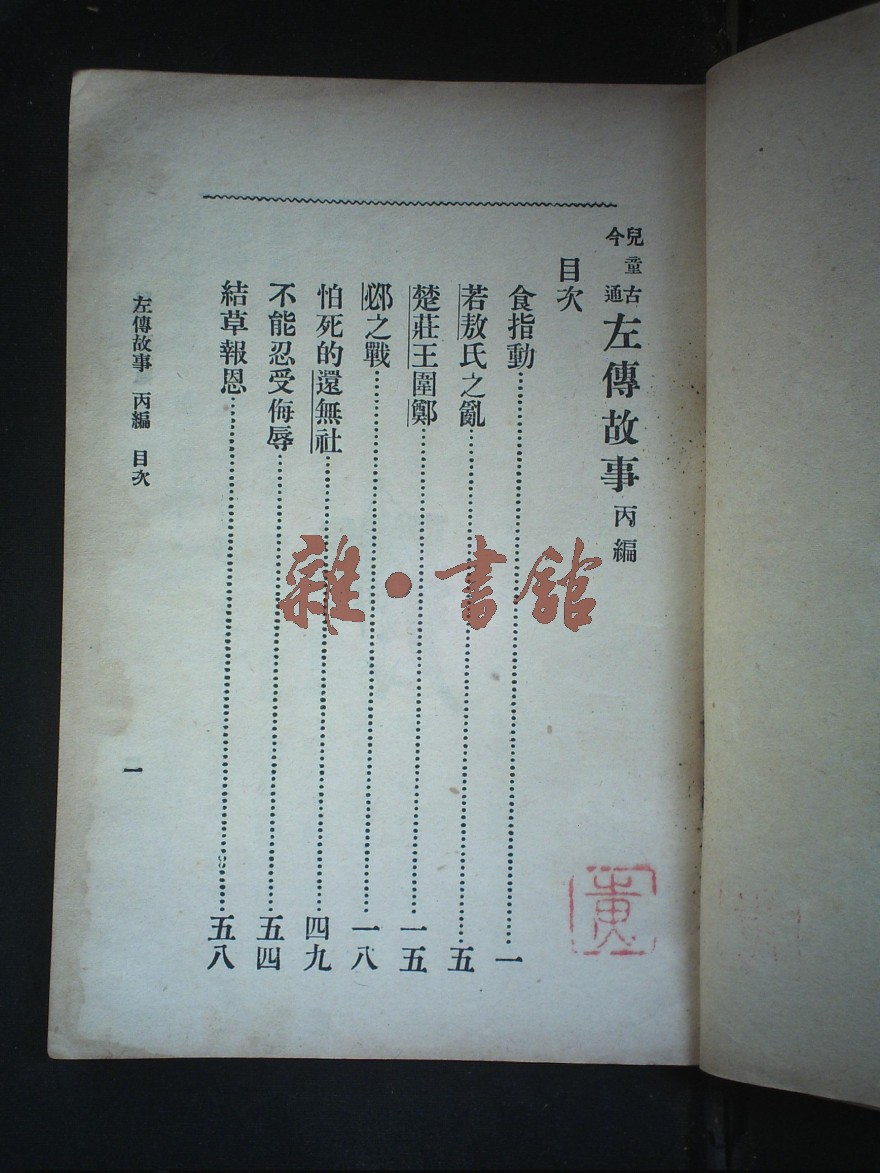 兒童古今通 左傳故事 丙編
目次
食指動……一
若敖氏之亂……五
楚莊王圍鄭……一五
邲之戰……一八
怕死的還無社……四九
不能忍受侮辱……五四
結草報恩……五八
左傳故事 丙編 目次
一
雜·書館
黃